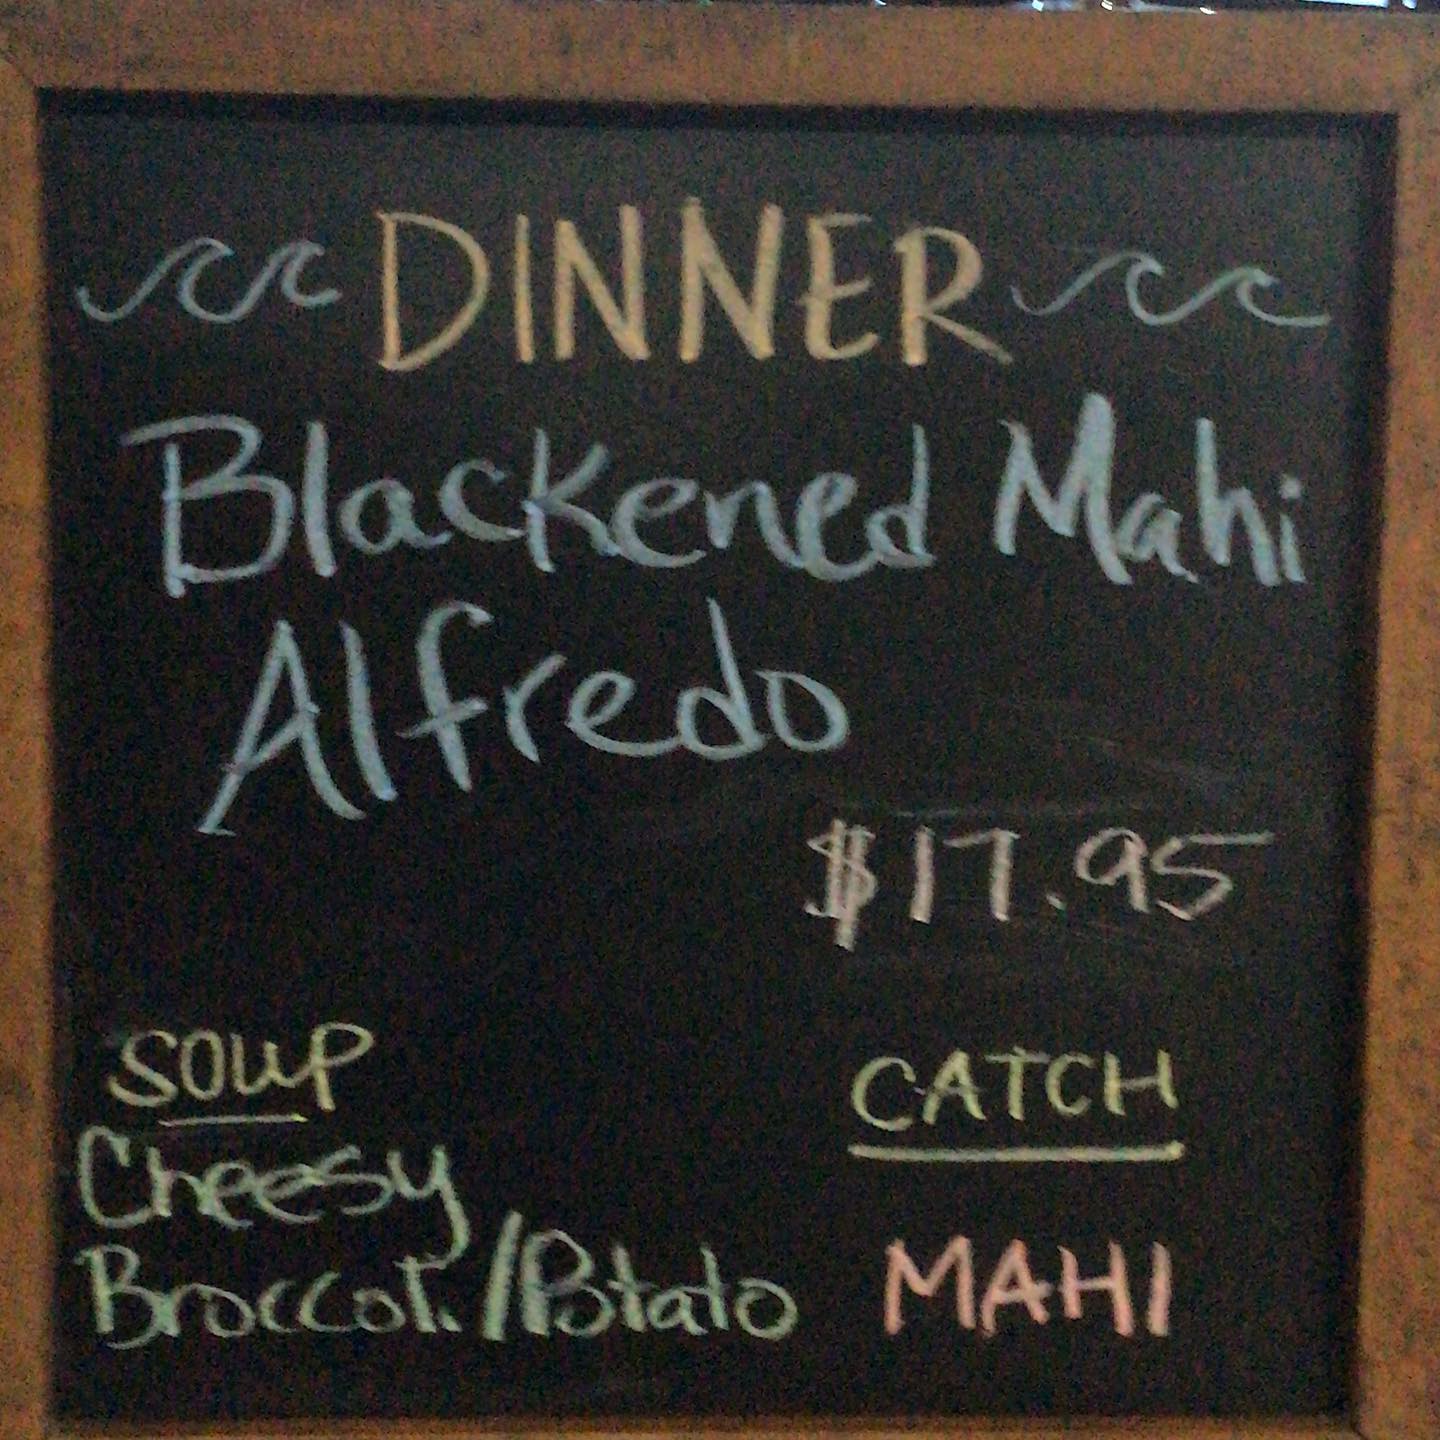 DINNER
Blackened Mahi
Alfredo
$17.95
SOUP
Cheesy
Broccoli/Potato
CATCH
MAHI